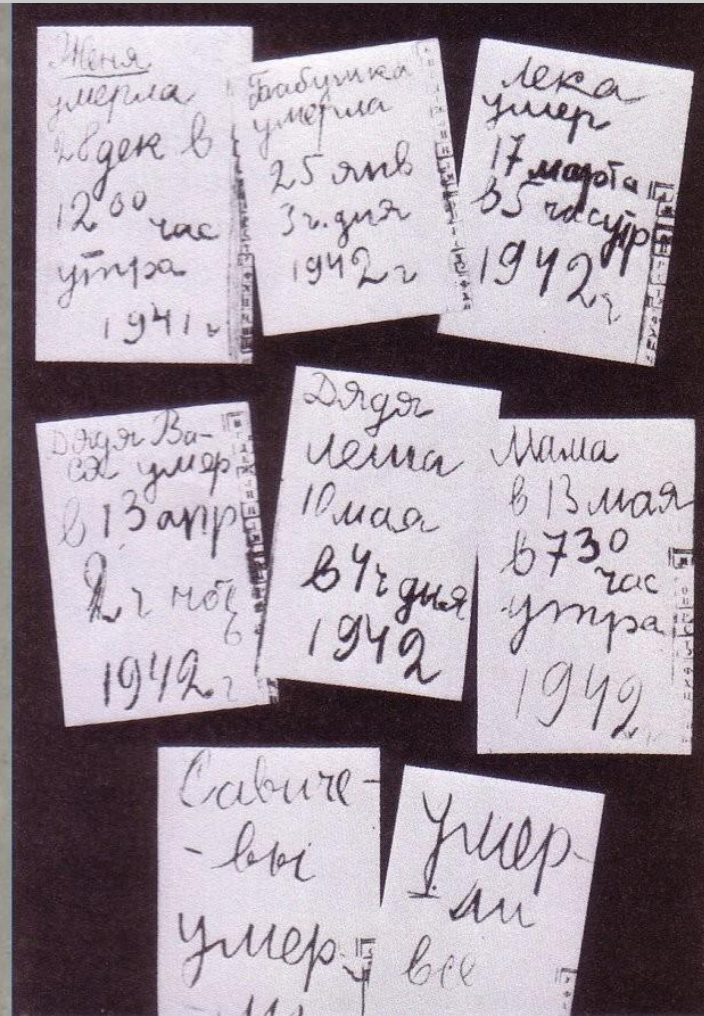 Женя
умерла
28 дек в
12 00 час
утра
1941 г
Бабушка
умерла
25 янв
3 ч. дня
1942 г
Лека
умер
17 марта
в 5 час утр
1942 г
Дядя Ва-
ся умер
в 13 апр
2 ч ноч
1942 г
Дядя
Леша
10 мая
в 4 ч дня
1942
Мама
в 13 мая
в 7 30
час
утра
1942
Савиче-
-вы
умер
умер-
-ли
все